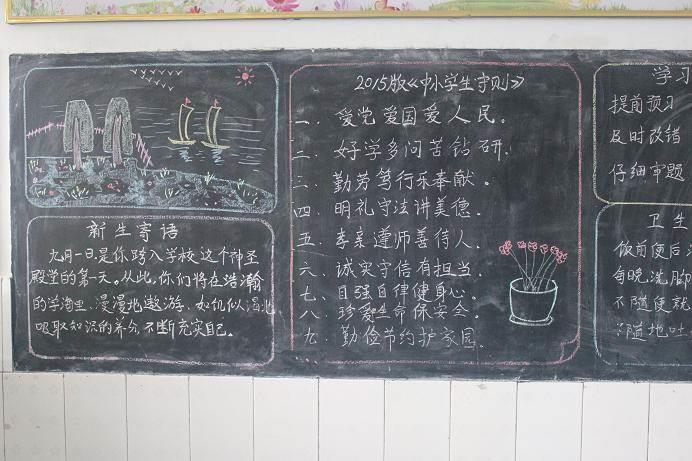 新生寄语
九月一日,是你跨入学校这个神圣
殿堂的第一天。从此,你们将在浩瀚
的学海里,漫漫地遨游,如饥似渴地
吸取知识的养分,不断充实自己。
2015版《中小学生守则》
一、爱党爱国爱人民。
二、好学多问苦钻研.
三、勤劳笃行乐奉献。
四、明礼守法讲美德。
五、孝亲遵师善待人。
六、诚实守信有担当。
七、自强自律健身心。
八、珍爱生命保安全。
九、勤俭节约护家园。
学习
提前预习
及时改错
仔细审题
卫生
饭前便后
每晚洗脚
不随便
随地吐